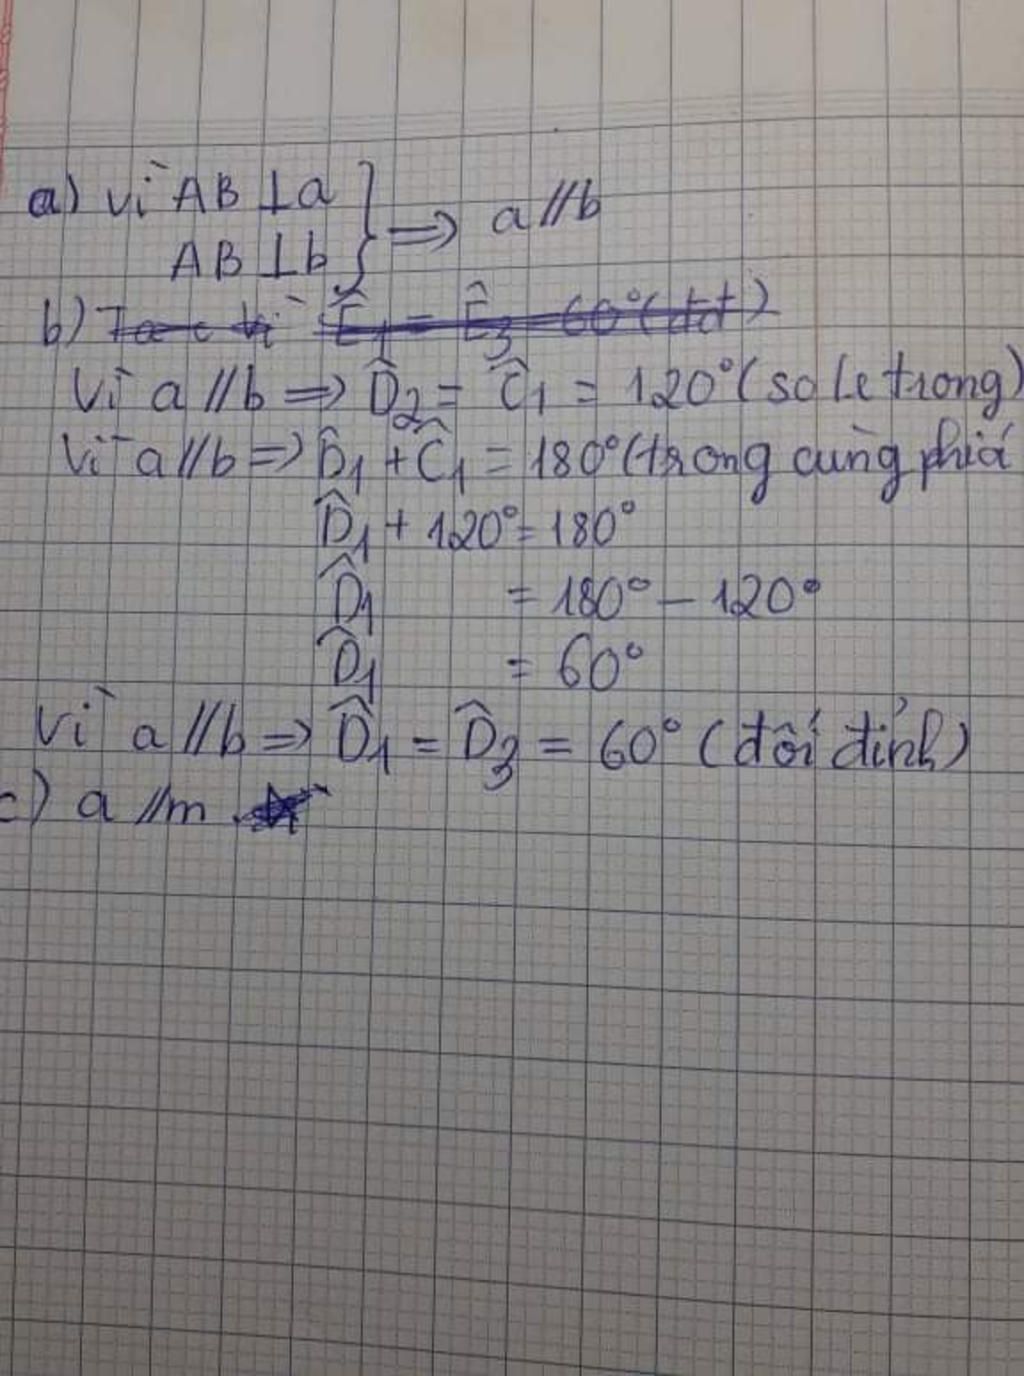 a) Vì AB ⊥ a
AB ⊥ b } ⇒ a // b
b)
Vì a // b ⇒ D̂₂ = Ĉ₁ = 120° (so le trong)
Vì a // b ⇒ D̂₁ + Ĉ₁ = 180° (trong cùng phía
D̂₁ + 120° = 180°
D̂₁ = 180° – 120°
D̂₁ = 60°
Vì a // b ⇒ D̂₁ = D̂₃ = 60° (đối đỉnh)
c) a // m